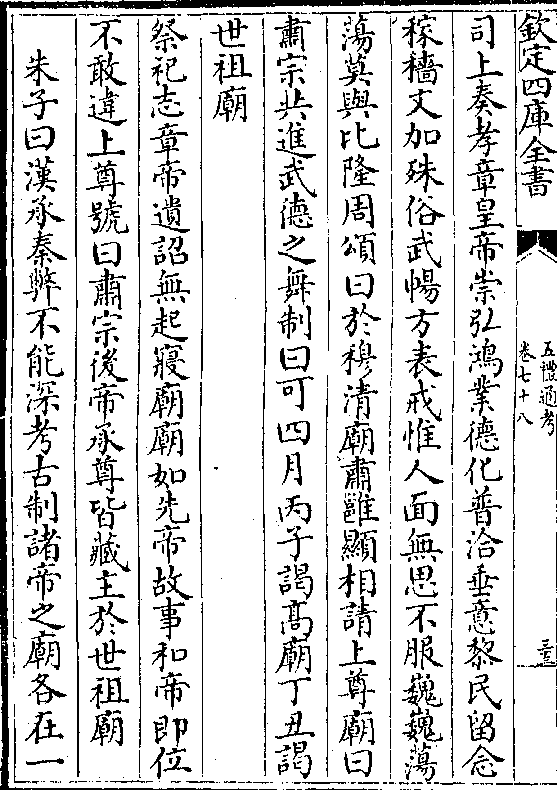 欽定四庫全書
五禮通考
卷七十八
司上奏孝章皇帝崇弘鴻業德化普洽垂意黎民留念
稼穡文加殊俗武暢方表戒惟人面無思不服巍巍蕩
蕩莫與比隆周頌曰於穆清廟肅雝顯相請上尊廟曰
肅宗共進武德之舞制曰可四月丙子謁髙廟丁丑謁
世祖廟
祭祀志章帝遺詔無起寢廟廟如先帝故事和帝即位
不敢違上尊號曰肅宗後帝承尊皆藏主於世祖廟
朱子曰漢承秦弊不能深考古制諸帝之廟各在一